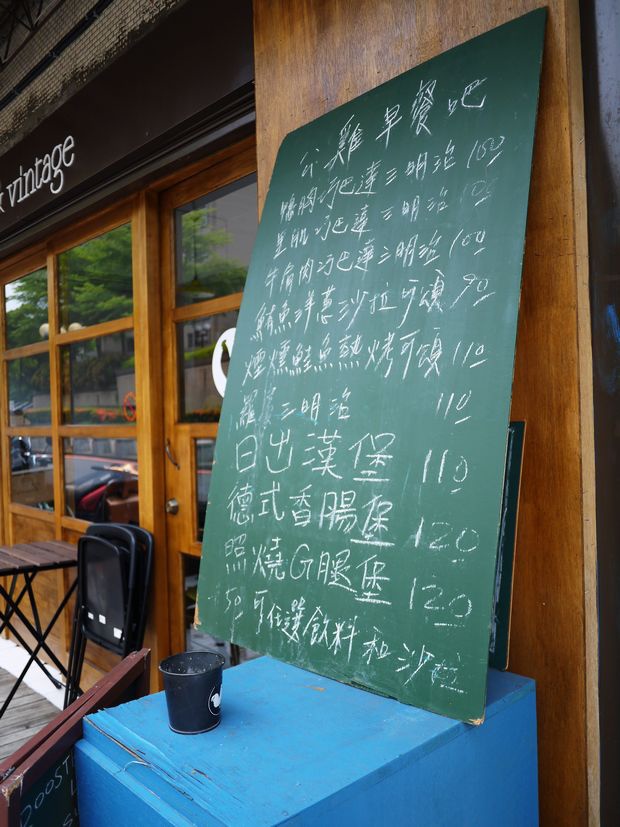 vintage
公雞早餐吧
鴨胸巧巴達三明治 100
里肌巧巴達三明治
牛肩肉巧巴達三明治 100
鮪魚洋蔥沙拉可頌 90
煙燻鮭魚熱烤可頌 110
三明治 110
日出漢堡 110
德式香腸堡 120
照燒G腿堡 120
50 可任選飲料和沙拉